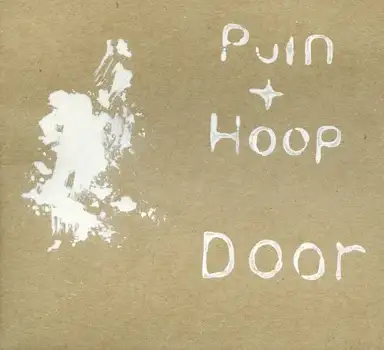 Puin
+
Hoop
Door